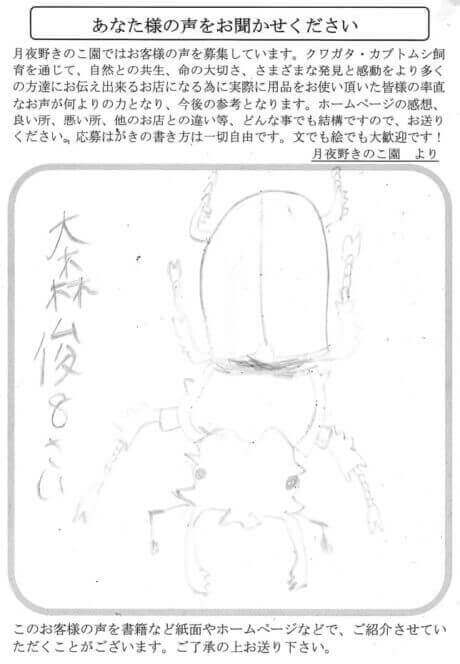 あなた様の声をお聞かせください
月夜野きのこ園ではお客様の声を募集しています。クワガタ・カブトムシ飼
育を通じて、自然との共生、命の大切さ、さまざまな発見と感動をより多く
の方達にお伝え出来るお店になる為に実際に用品をお使い頂いた皆様の率直
なお声が何よりの力となり、今後の参考となります。ホームページの感想、
良い所、悪い所、他のお店との違い等、どんな事でも結構ですので、お送り
ください。応募はがきの書き方は一切自由です。文でも絵でも大歓迎です!
月夜野きのこ園 より
大森俊8さい
このお客様の声を書籍など紙面やホームページなどで、ご紹介させてい
ただくことがございます。ご了承の上お送り下さい。